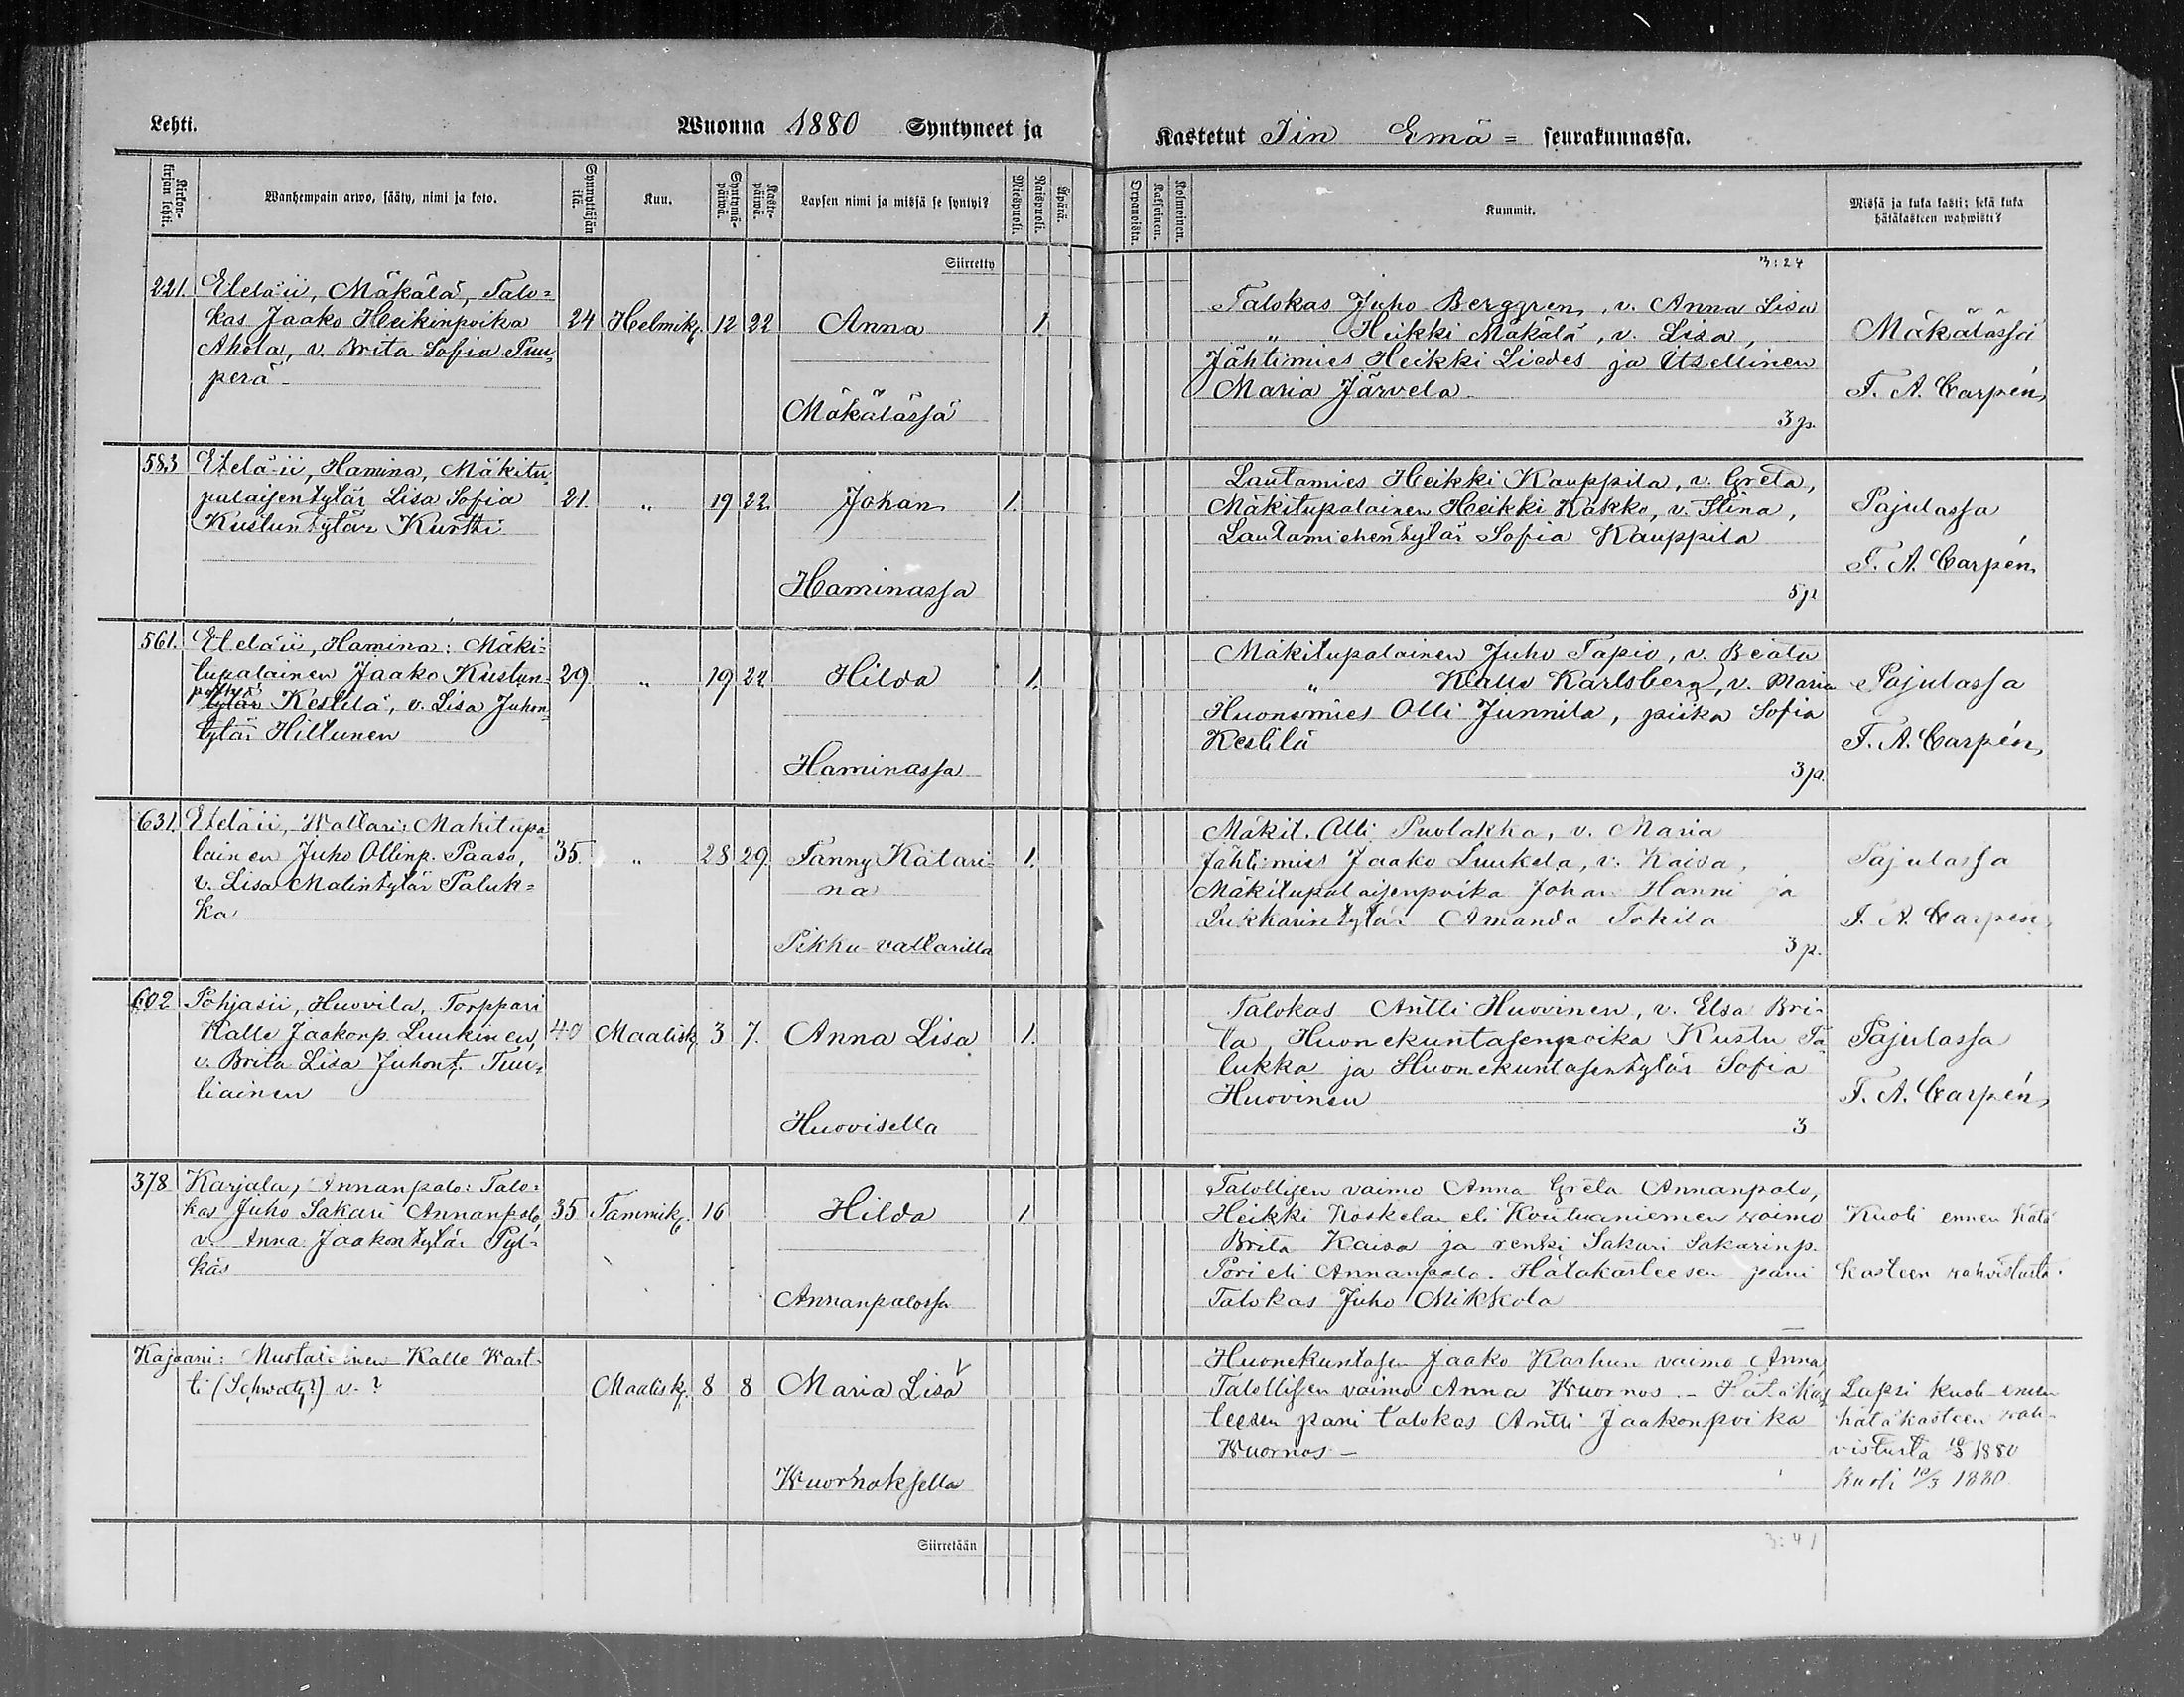 Lehti.
Wuonna 1880 Syntyneet ja
Kastetut Iin Emä= seurakunnassa.
Kirkonkirjan lehti.
Wanhempain arwo, sääty, nimi ja koto.
Synnyttäjän ikä.
Kuu.
Syntymäpäiwä.
Kastepäiwä.
Lapsen nimi ja missä se syntyi?
Miespuoli.
Naispuoli.
Äpärä.
Orpanoista.
Kaksoinen.
Kolmoinen.
Kummit.
Missä ja kuka kasti; sekä kuka
hätäkasteen wahwisti?
Siirretty
3:24
221. Etelä ii, Mäkälä, Talo=
kas Jaako Heikinpoika
Ahola, v. Brita Sofia Puu,
perä
24 Helmik. 12 22 Anna 1.
Mäkälässä
Talokas Juho Berggren, v. Anna Lisa
" Heikki Mäkälä, v. Lisa,
Jähtimies Heikki Liedes ja Itsellinen
Maria Järvela
3 p.
Mäkälässä
F. A. Carpén,
583 Etelä ii, Hamina, Mäkitu,
palaisentytär Lisa Sofia
Kustuntytär Kurtti
21. " 19 22. Johan 1.
Haminassa
Lautamies Heikki Kauppila, v. Greta,
Mäkitupalainen Heikki Kakko, v. Stina,
Lautamiehentytär Sofia Kauppila
5 p
Pajulassa
F. A. Carpén.
561. Etelä ii, Hamina: Mäki=
tupalainen Jaako Kustun=
poika
tytär Kestilä, v. Lisa Juhon=
tytär Hiltunen
29. " 19 22 Hilda 1.
Haminassa
Mäkitupalainen Juho Tapio, v. Beata
" Kalle Karlsberg, v. Maria
Huonemies Olli Junnila, piika Sofia
Kestilä
3 p.
Pajulassa
F. A. Carpén,
631. Etelä ii, Wattari: Mäkitupa
lainen Juho Ollinp. Paaso,
v. Lisa Matintytär Paluk=
ka
35. " 28 29. Fanny Katari=
na 1.
Pikku-vattarilla
Mäkit. Olli Puolakka, v. Maria
Jähtimies Jaako Luukela, v. Kaisa,
Mäkitupalaisenpoika Johan Hanni ja
Lukkarintytär Amanda Tokila
3 p.
Pajulassa
F. A. Carpén,
602 Pohjasii, Huovila, Torppari
Kalle Jaakonp. Luukinen,
v. Brita Lisa Juhont. Tuu,
liainen
40 Maalisk. 3 7. Anna Lisa 1.
Huovisella
Talokas Antti Huovinen, v. Elsa Bri=
ta, Huonekuntasenpoika Kustu Pa
lukka ja Huonekuntasentytär Sofia
Huovinen
3
Pajulassa
F. A. Carpén,
378 Karjala, Annanpalo: Talo=
kas Juho Sakari Annanpalo,
v. Anna Jaakontytär Pyl=
käs
35 Tammik. 16 Hilda 1.
Annanpalossa
Talollisen vaimo Anna Greta Annanpalo,
Heikki Koskelan eli Koutuaniemen vaimo
Brita Kaisa ja renki Sakari Sakarinp.
Pori eli Annanpalo. Hätäkasteesen pani
Talokas Juho Mikkola
Kuoli ennen hätä
kasteen vahvistusta.
Kajaani: Kalle Wart=
ti (Schwartz?) v. ?
Maalisk. 8 8 Maria Lisa
Kuornoksella
Huonekuntasen Jaako Karhun vaimo Anna,
Talollisen vaimo Anna Kuornos. - Hätäkas
teesen pani talokas Antti Jaakonpoika
Kuornos -
Lapsi kuoli ennen
hätäkasteen vah=
vistusta 10/3 1880
Kuoli 10/3 1880.
Siirretään
3:41